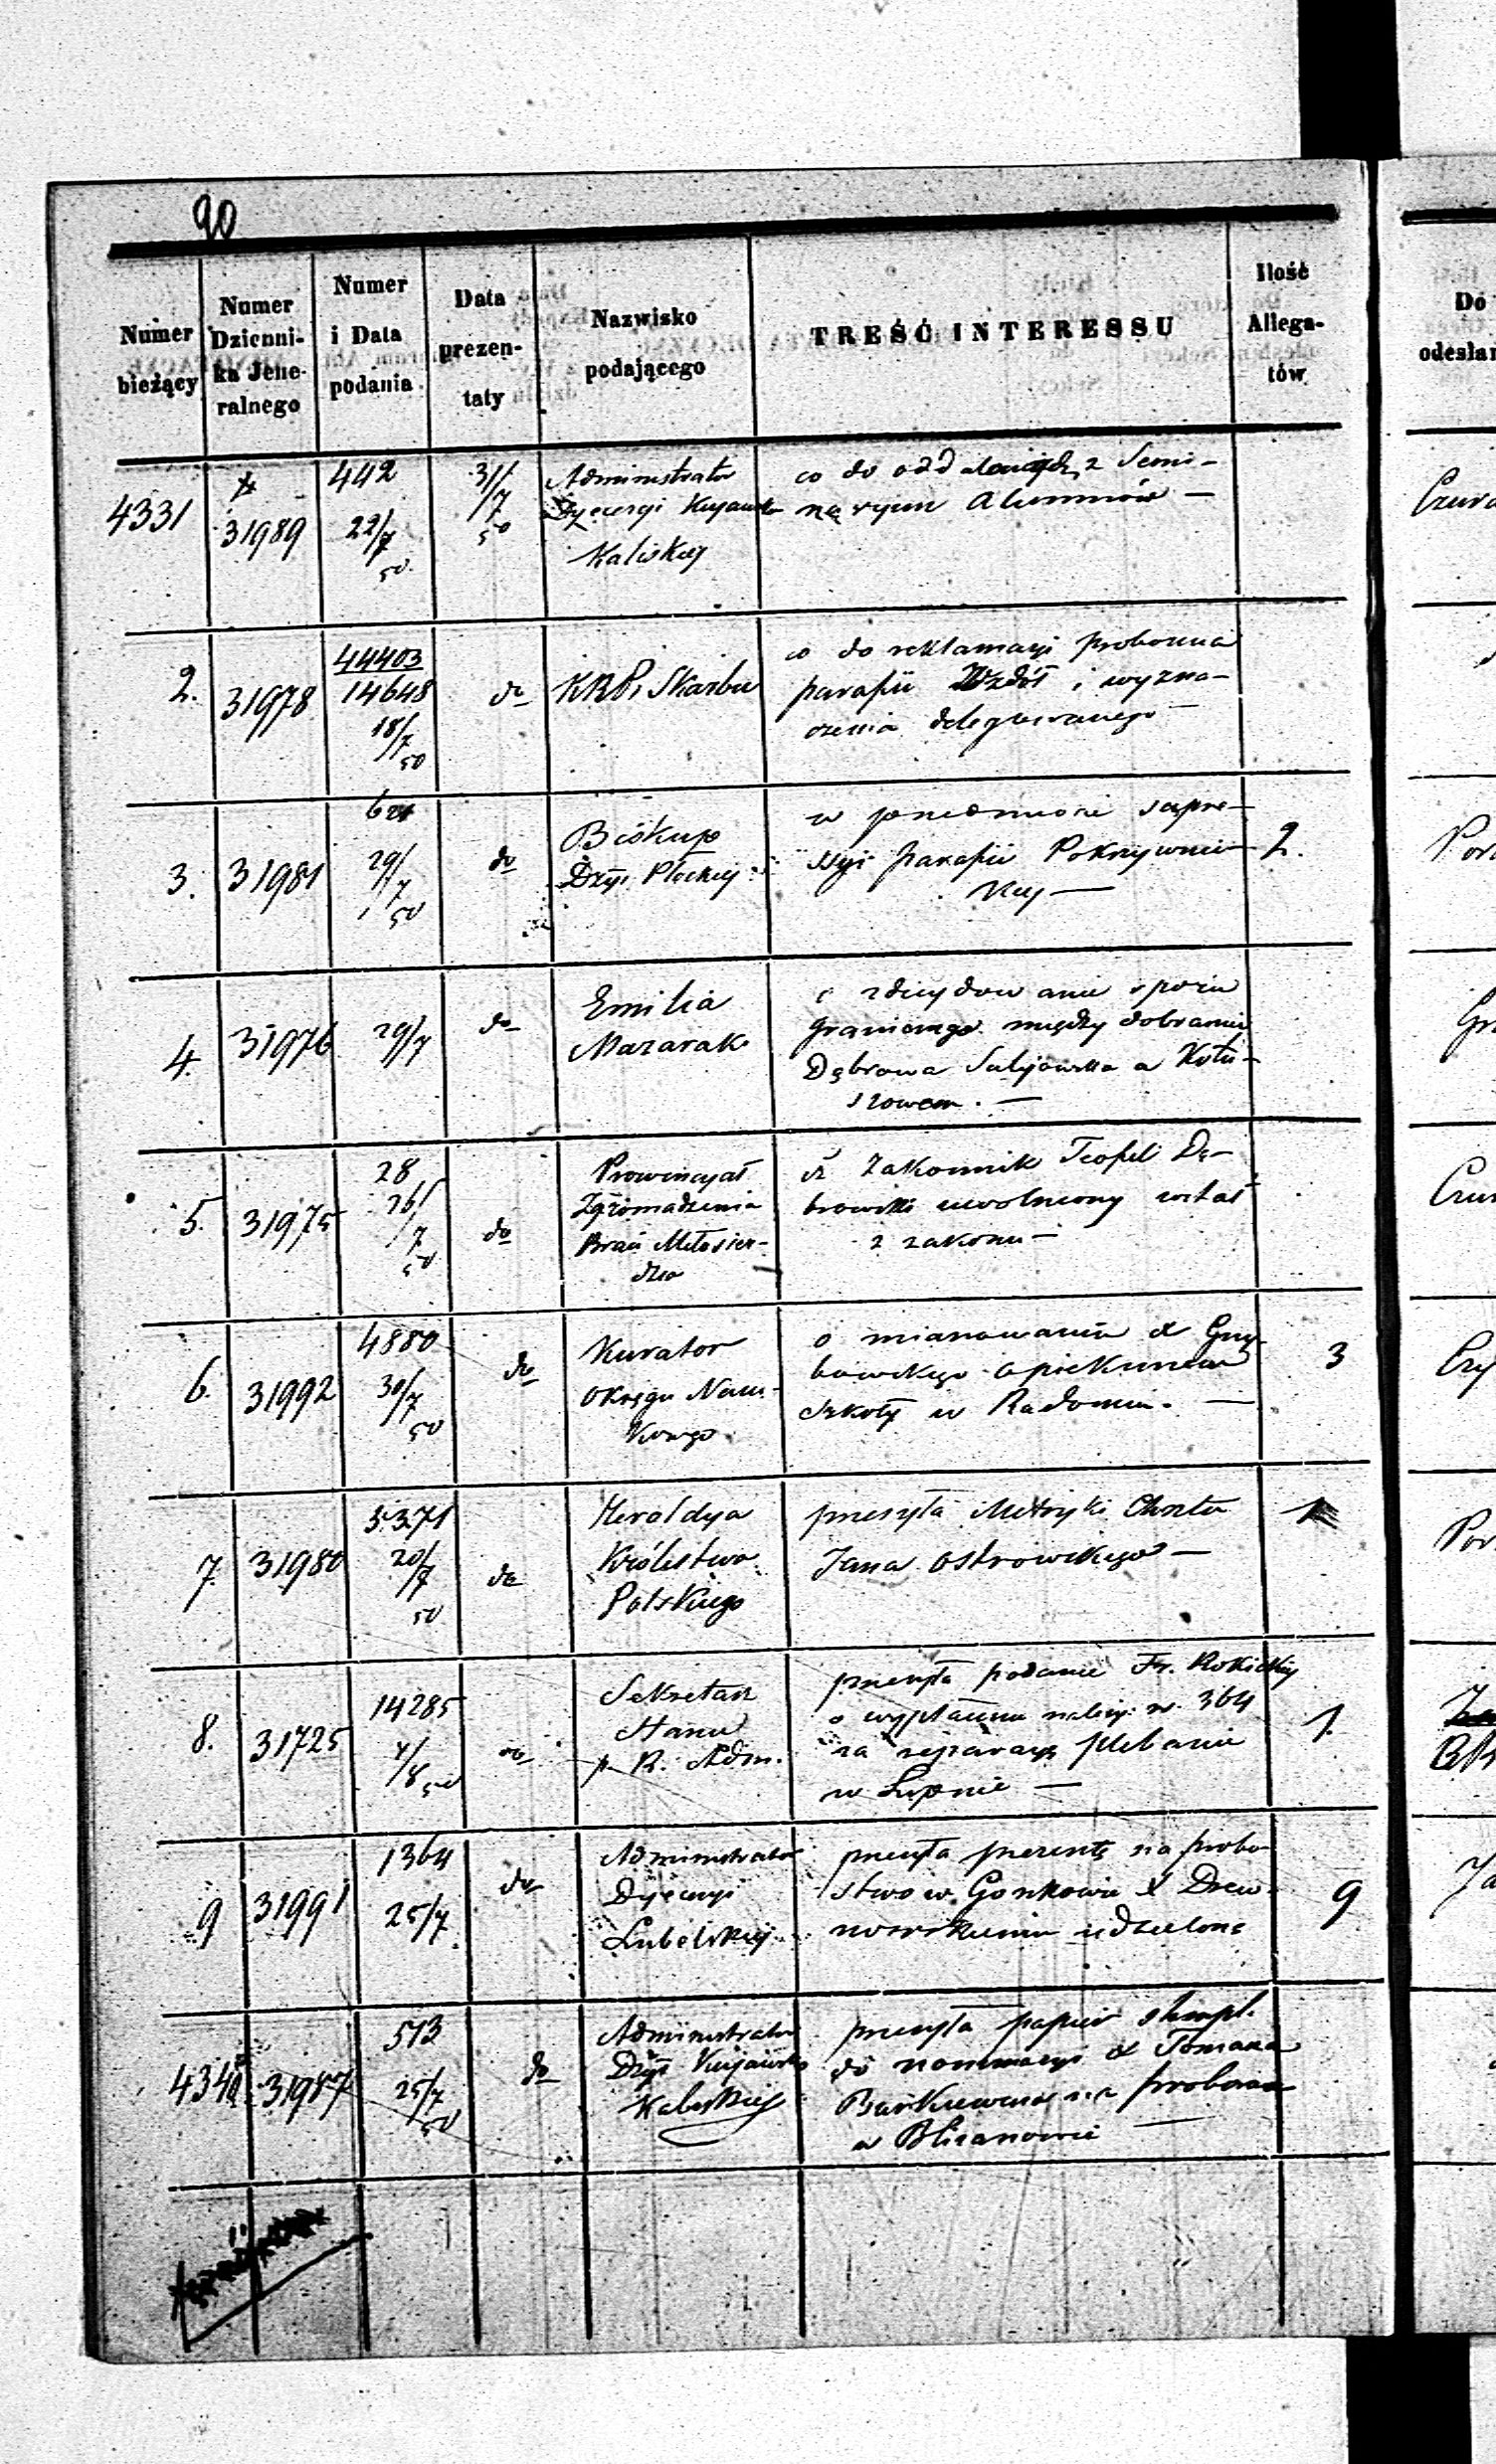 90
Numer bieżący
Numer Dzienni- ka Jene- ralnego
Numer i Data podania
Data prezen- taty
Nazwisko podającego
TREŚĆ INTERESSU
Ilość Allega- tów
Do
odesłan
4331
31989
442
22/7
50
31/7
50
Administrator
Dyecezyi Kujawsko
Kaliskiej
co do oddalonych z Semi-
naryum Alumnów —
2.
31978
44403
14648
18/7
50
do
KRP i Skarbu
co do reklamacyi proboszcza
parafii Wzdół i wyzna-
czenia delegowanego —
3.
31981
621
29/7
50
do
Biskup
Dyi Płockiej
w przedmiocie suppre-
ssyi parafii Pokrzywni-
kiej —
2.
4.
31976
29/7
do
Emilia
Mazaraki
o zdecydowanie sporu
granicznego między dobrami
Dąbrowa a Kotu-
szowem. —
5.
31975
28
26/7
50
do
Prowincyał
Zgromadzenia
Braci Miłosier-
dzia
iż Zakonnik Teofil Dą-
browski uwolniony został
z zakonu —
6.
31992
4880
30/7
50
do
Kurator
Okręgu Nau-
kowego
o mianowaniu X Grzy-
bowskiego opiekunem
szkoły w Radomiu. —
3
7.
31980
5371
20/7
50
do
Heroldya
Królestwa
Polskiego
przesyła Metryki Chrztu
Jana Ostrowskiego —
1
8.
31725
14285
4/8 50
do
Sekretarz
Stanu
p. R. Adm.
przesyła podanie Fr. Rokickiej
o wypłacenie należy: rs. 364
za reparacyę plebanii
w Lipnie —
1.
9
31991
1364
25/7
do
Administrator
Dyecezyi
Lubelskiej
przesyła prezentę na probo-
stwo w Gorzkowie X Drew-
nowskiemu udzieloną
9
4340
31987
513
25/7
50
do
Administrator
Dyi Kujawsko
Kaliskiej
przesyła papier stempl.
do nominacyi X Tomasza
Bartkiewicza na proboszcza
w Blizanowie —